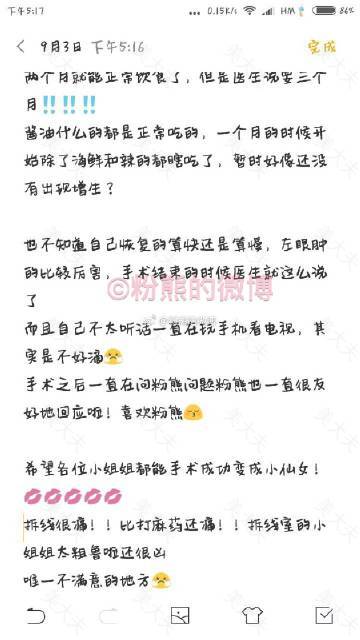 下午5:17
0.15K/s
HM
86%
9月3日 下午5:16
完成
两个月就能正常饮食了，但是医生说要三个
月‼️‼️‼️
酱油什么的都是正常吃的，一个月的时候开
始除了海鲜和辣的都瞎吃了，暂时好像还没
有出现增生？
也不知道自己恢复的算快还是算慢，左眼肿
的比较厉害，手术结束的时候医生就这么说
了
©粉熊的微博
而且自己不太听话一直在玩手机看电视，其
实是不好滴😤
手术之后一直在问粉熊问题粉熊也一直很友
好地回应啦！喜欢粉熊😚
希望各位小姐姐都能手术成功变成小仙女！
💋💋💋💋💋
拆线很痛！！比打麻药还痛！！拆线室的小
姐姐太粗鲁啦还很凶
唯一不满意的地方😤